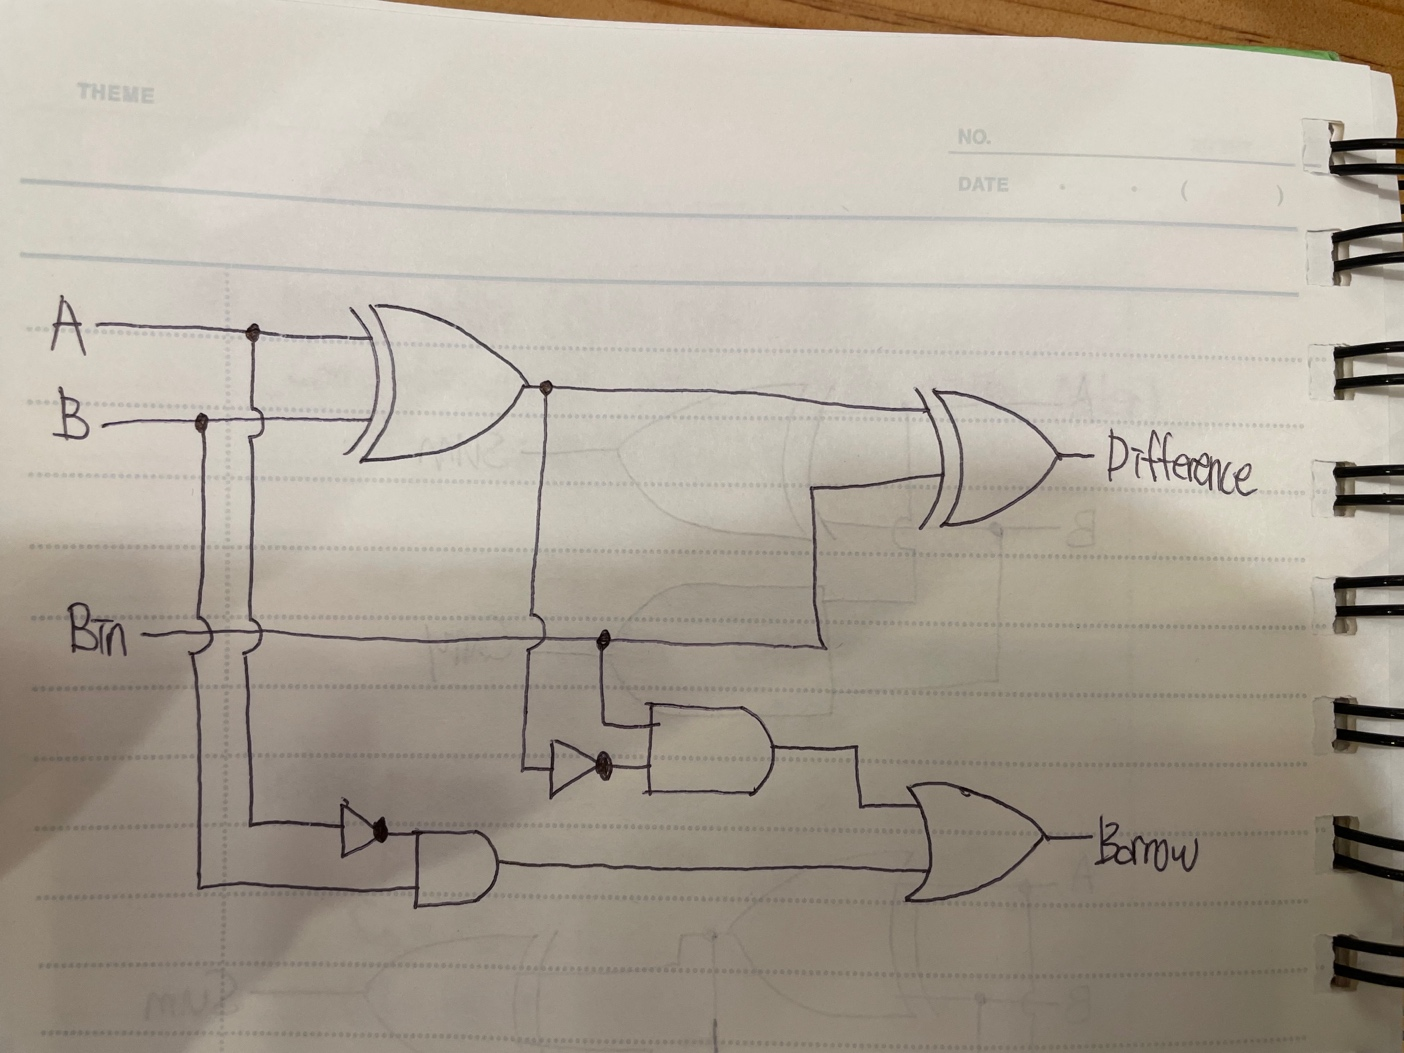 THEME
NO.
DATE . . ( )
A
B
Difference
Bin
Borrow